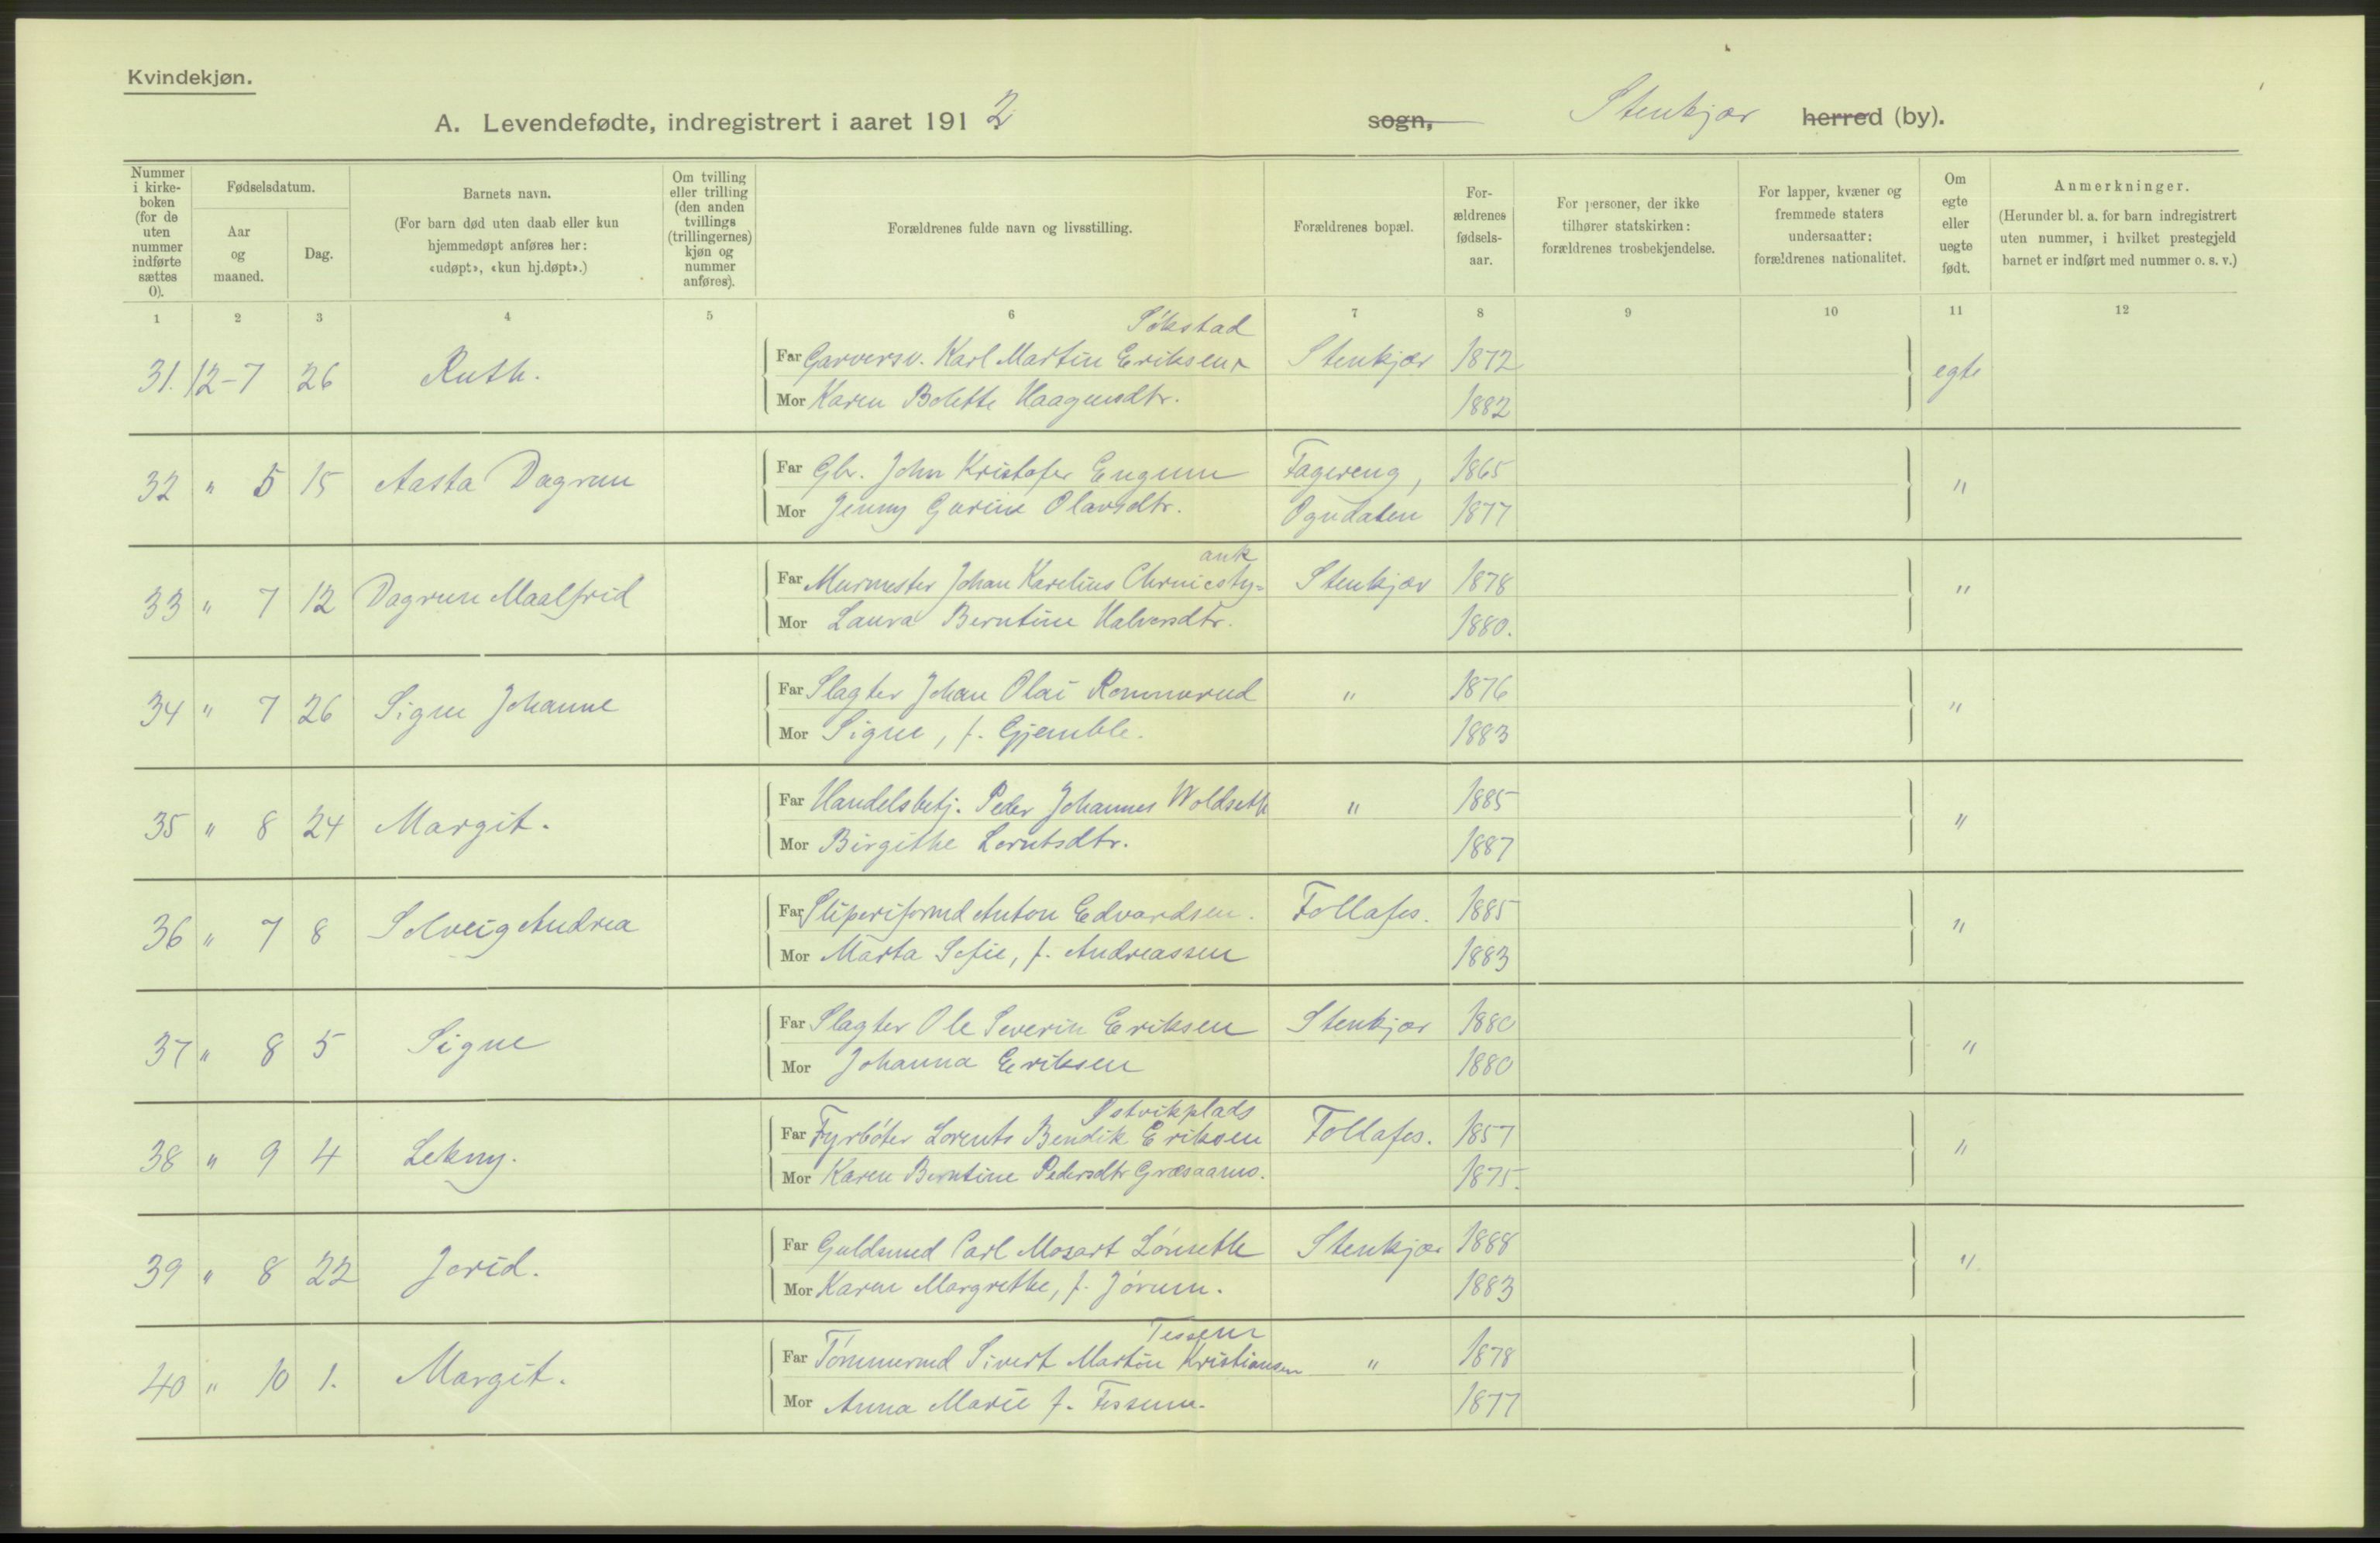 Kvindekjøn.
A. Levendefødte, indregistrert i aaret 1912 sogn, Stenkjær herred (by).
Nummer i kirkeboken (for de uten nummer indførte sættes 0).
Fødselsdatum.
Aar og maaned.
Dag.
Barnets navn.
(For barn død uten daab eller kun hjemmedøpt anføres her: «udøpt», «kun hj.døpt».)
Om tvilling eller trilling (den anden tvillings (trillingernes) kjøn og nummer anføres).
Forældrenes fulde navn og livsstilling.
Forældrenes bopæl.
For-ældrenes fødsels-aar.
For personer, der ikke tilhører statskirken: forældrenes trosbekjendelse.
For lapper, kvæner og fremmede staters undersaatter: forældrenes nationalitet.
Om egte eller uegte født.
Anmerkninger.
(Herunder bl. a. for barn indregistrert uten nummer, i hvilket prestegjeld barnet er indført med nummer o. s. v.)
1 2 3 4 5 6 7 8 9 10 11 12
Søkstad
31. 12-7 26 Ruth. Far Garversv. Karl Martin Eriksen Stenkjær 1872 egte
Mor Karen Bolette Haagensdtr. 1882
32 " 5 15 Aasta Dagrun Far Gbr. John Kristofer Engum Fagereng, 1865 "
Mor Jenny Gurine Olavsdtr. Ogndalen 1877
33 " 7 12 Dagrun Maalfrid Far Murmester Johan Karelius Stenkjær 1878 "
Mor Laura Berntine Halvorsdtr. 1880.
34 " 7 26 Signe Johanne Far Slagter Johan Olai Rommerud " 1876 "
Mor Signe, f. Gjemble. 1883
35 " 8 24 Margit. Far Handelsbetj. Peder Johannes Woldseth " 1885 "
Mor Birgithe Lorntsdtr. 1887
36 " 7 8 Solveig Andrea Far Sliperiformd Anton Edvardsen. Follafos. 1885 "
Mor Marta Sofie, f. Andreassen 1883
37 " 8 5 Signe Far Slagter Ole Severin Eriksen Stenkjær 1880 "
Mor Johanna Eriksen 1880
Østvikplads
38 " 9 4 Far Fyrbøter Lorents Bendik Eriksen Follafos. 1857 "
Mor Karen Berntine Pedersdtr 1875.
39 " 8 22 Jorid. Far Guldsmed Carl Mozart Lønseth Stenkjær 1888 "
Mor Karen Margrethe, f. Jørum. 1883
Tessem
40 " 10 1. Margit. Far Tømmermd Sivert Martin Kristiansen " 1878
Mor Anna Marie f. Tessem. 1877